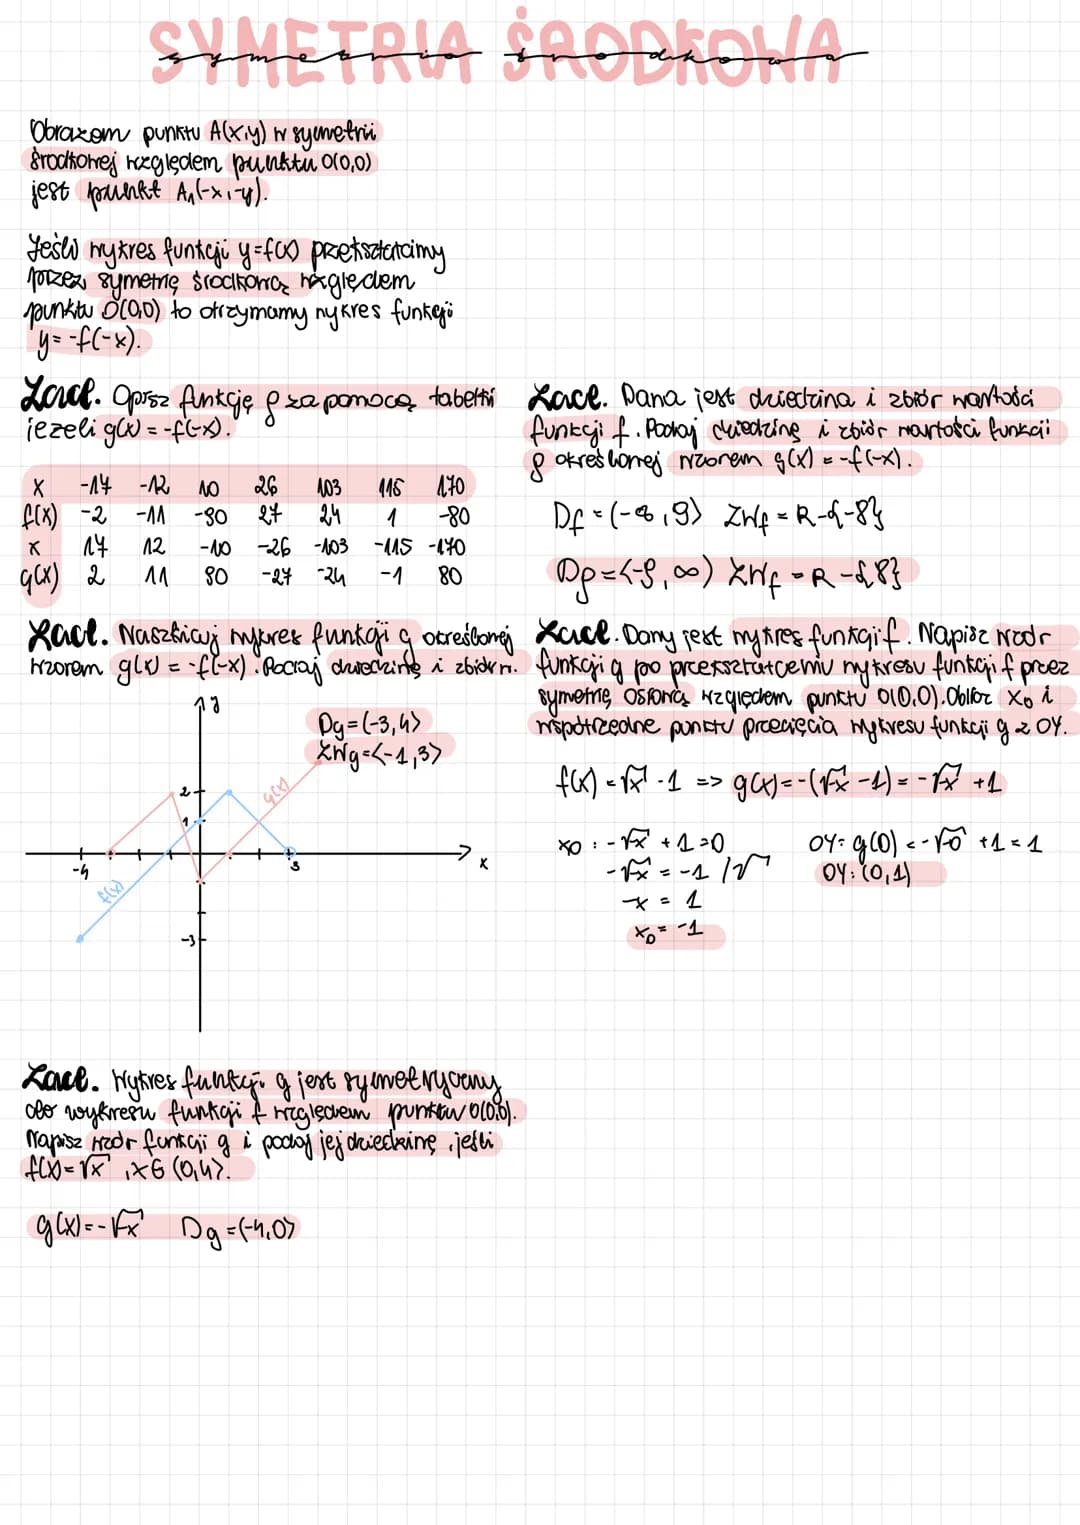 SYMETRIA ŚRODKOWA
symetria środkowa
Obrazem punktu A(x,y) w symetrii
środkowej względem punktu O(0,0)
jest punkt A₁(-x,-y).
Jeśli wykres funkcji y=f(x) przekształcimy
przez symetrię środkową względem
punktu O(0,0) to otrzymamy wykres funkcji
y=-f(-x).
Zad. Opisz funkcję g za pomocą tabelki
jeżeli g(x) = -f(-x).
x -14 -12 10 26 103 115 170
f(x) -2 -11 -80 27 24 1 -80
x 14 12 -10 -26 -103 -115 -170
g(x) 2 11 80 -27 -24 -1 80
Zad. Dana jest dziedzina i zbiór wartości
funkcji f. Podaj dziedzinę i zbiór wartości funkcji
g określonej wzorem g(x) = -f(-x).
Df = (-∞,9> ZWf = R-{-8}
Dg=<-9,∞) ZWf = R-{8}
Zad. Naszkicuj wykres funkcji g określonej
wzorem g(x) = -f(-x). Podaj dziedzinę i zbiór w.
y
Dg=(-3,4>
ZWg=<-2,3>
g(x)
2
1
-4
3
x
f(x)
-3
Zad. Dany jest wykres funkcji f. Napisz wzór
funkcji g po przekształceniu wykresu funkcji f przez
symetrię osiową względem punktu O(0,0). Oblicz x₀ i
współrzędne punktu przecięcia wykresu funkcji g z OY.
f(x) = √x - 1 => g(x)=-(√-x -1) = -√-x +1
x0 : -√-x + 1 =0
-√-x = -1 /√
-x = 1
x₀ = -1
OY: g(0) = -√-0 +1 = 1
OY: (0,1)
Zad. Wykres funkcji g jest symetryczny
do wykresu funkcji f względem punktu O(0,0).
Napisz wzór funkcji g i podaj jej dziedzinę, jeśli
f(x)=√x , x∈(0,4>.
g(x)=-√-x Dg=(-4,0>